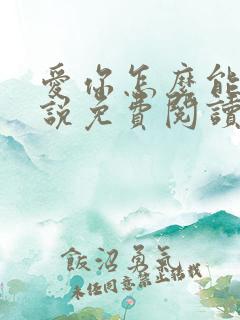 愛你怎麼能
說免費閱讀
飯沼勇氣
未任同意禁止轉載